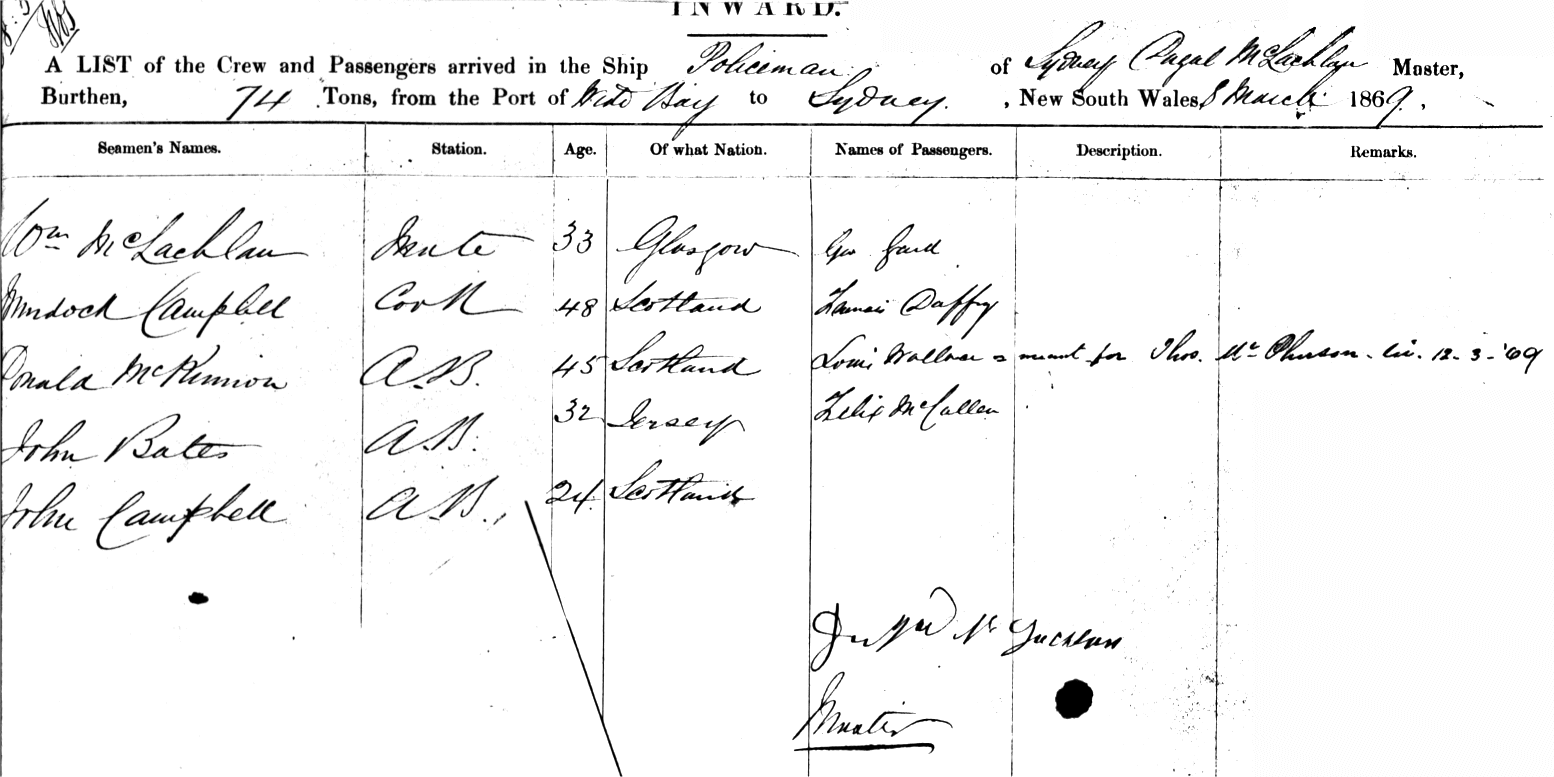 INWARD.
A LIST of the Crew and Passengers arrived in the Ship Policeman of Sydney Dugal McLachlan Master,
Burthen, 74 Tons, from the Port of Wide Bay to Sydney. , New South Wales, 8 March 1869. ,
Seamen's Names. Station. Age. Of what Nation. Names of Passengers. Description. Remarks.
Wm McLachlan Mate 33 Glasgow Geo Gard
Murdoch Campbell Cook 48 Scotland Duffy
Donald McKinnon A.B. 45 Scotland Louis Wallace = meant for Thos. Mc Pherson. 12-3-'69
John Bates A.B. 32 Jersey Felix McCallen
John Campbell A.B. 24 Scotland
Mc Lachlan
Master